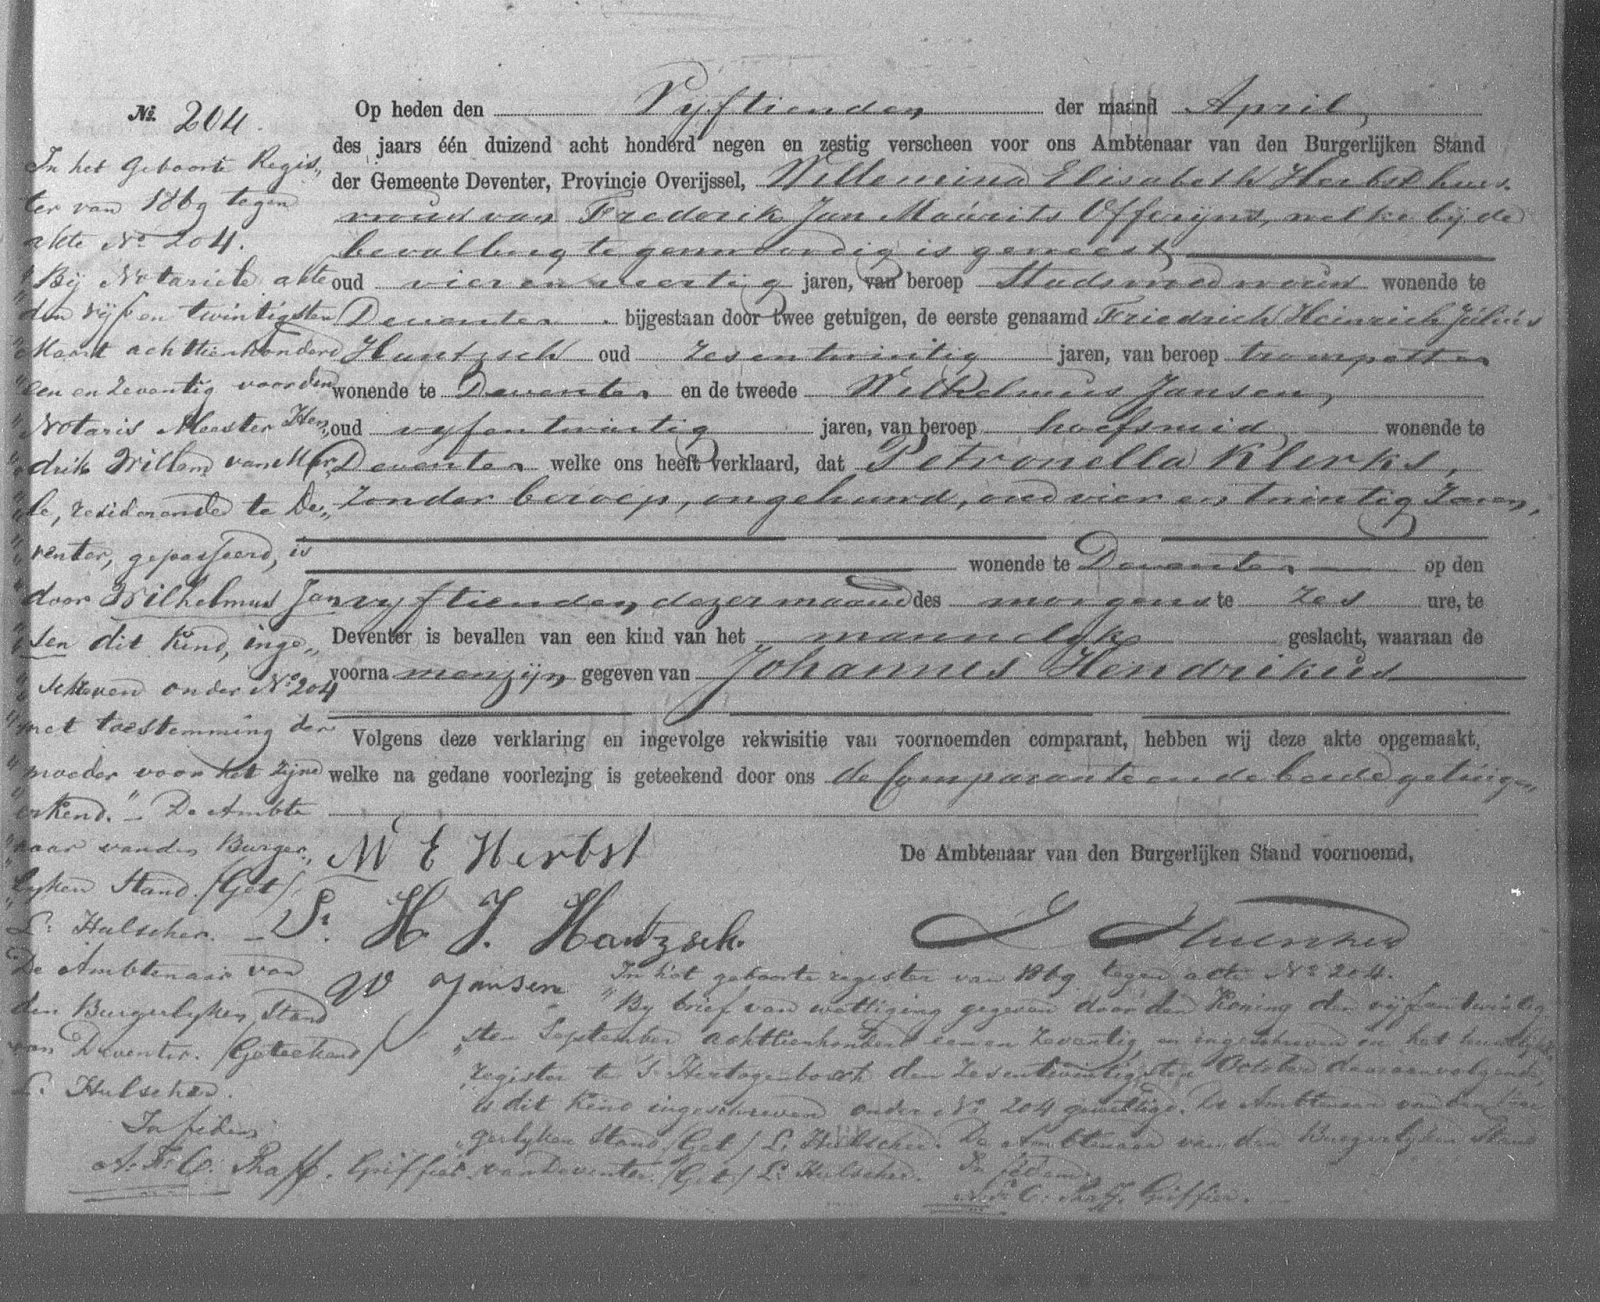 No. 204.
In het Geboorte Regis„
ter van 1869 tegen
akte No 204.
„Bij Notariele akte
den vijf en twintigsten
Maart achttienhonderd
een en zeventig voor den
Notaris Meester Hen„
drik Willem van Mar„
le, residerende te De„
venter, gepasseerd, is
door Wilhelmus Jan„
sen dit kind, inge„
schreven onder No 204
met toestemming der
moeder voor het zijne
erkend." De Ambte
naar van den Burger„
lyken Stand. (Get)
L. Hulscher.
De Ambtenaar van
den Burgerlyken Stand
van Deventer. (Geteekend)
L. Hulscher.
In fidem
A. Fr. C. Phaff. Griffier.
Op heden den Vyftienden der maand April,
des jaars één duizend acht honderd negen en zestig verscheen voor ons Ambtenaar van den Burgerlijken Stand
der Gemeente Deventer, Provincie Overijssel, Willemina Elisabeth Herbst huis
vrouw van Frederik Jan Maurits Offerijns, welke bij de
bevalling tegenwoordig is geweest
oud vier en veertig jaren, van beroep Stadsvroedvrouw wonende te
Deventer bijgestaan door twee getuigen, de eerste genaamd Friedrich Heinrich Julius
Hantzsch oud zesentwintig jaren, van beroep trompetter
wonende te Deventer en de tweede Wilhelmus Jansen,
oud vyfentwintig jaren, van beroep hoefsmid wonende te
Deventer welke ons heeft verklaard, dat Petronella Klerks,
zonder beroep, ongehuwd, oud vier en twintig Jaren,
wonende te Deventer op den
vyftienden dezer maand des morgens te zes ure, te
Deventer is bevallen van een kind van het mannelyk geslacht, waaraan de
voorna menzijn gegeven van Johannes Hendrikus
Volgens deze verklaring en ingevolge rekwisitie van voornoemden comparant, hebben wij deze akte opgemaakt,
welke na gedane voorlezing is geteekend door ons de Comparante en de beide getuigen
W E Herbst
De Ambtenaar van den Burgerlijken Stand voornoemd,
Fr. H. J. Hantzsch.
W Jansen
In het geboorte register van 1869 tegen acte No 204.
„By brief van wettiging gegeven door den Koning den vijfentwintig
„sten September achttienhonderd een en zeventig, en ingeschreven in het
register te 's Hertogenbosch den zesentwintigsten October daaraanvolgende,
is dit kind ingeschreven onder No 204 gewettigd. De Ambtenaar van den Bur
gerlyken Stand (Get) L. Hulscher. De Ambtenaar van den Burgerlyken Stand
van Deventer. (Get) L. Hulscher.
In fidem
A. Fr. C. Phaff. Griffier.